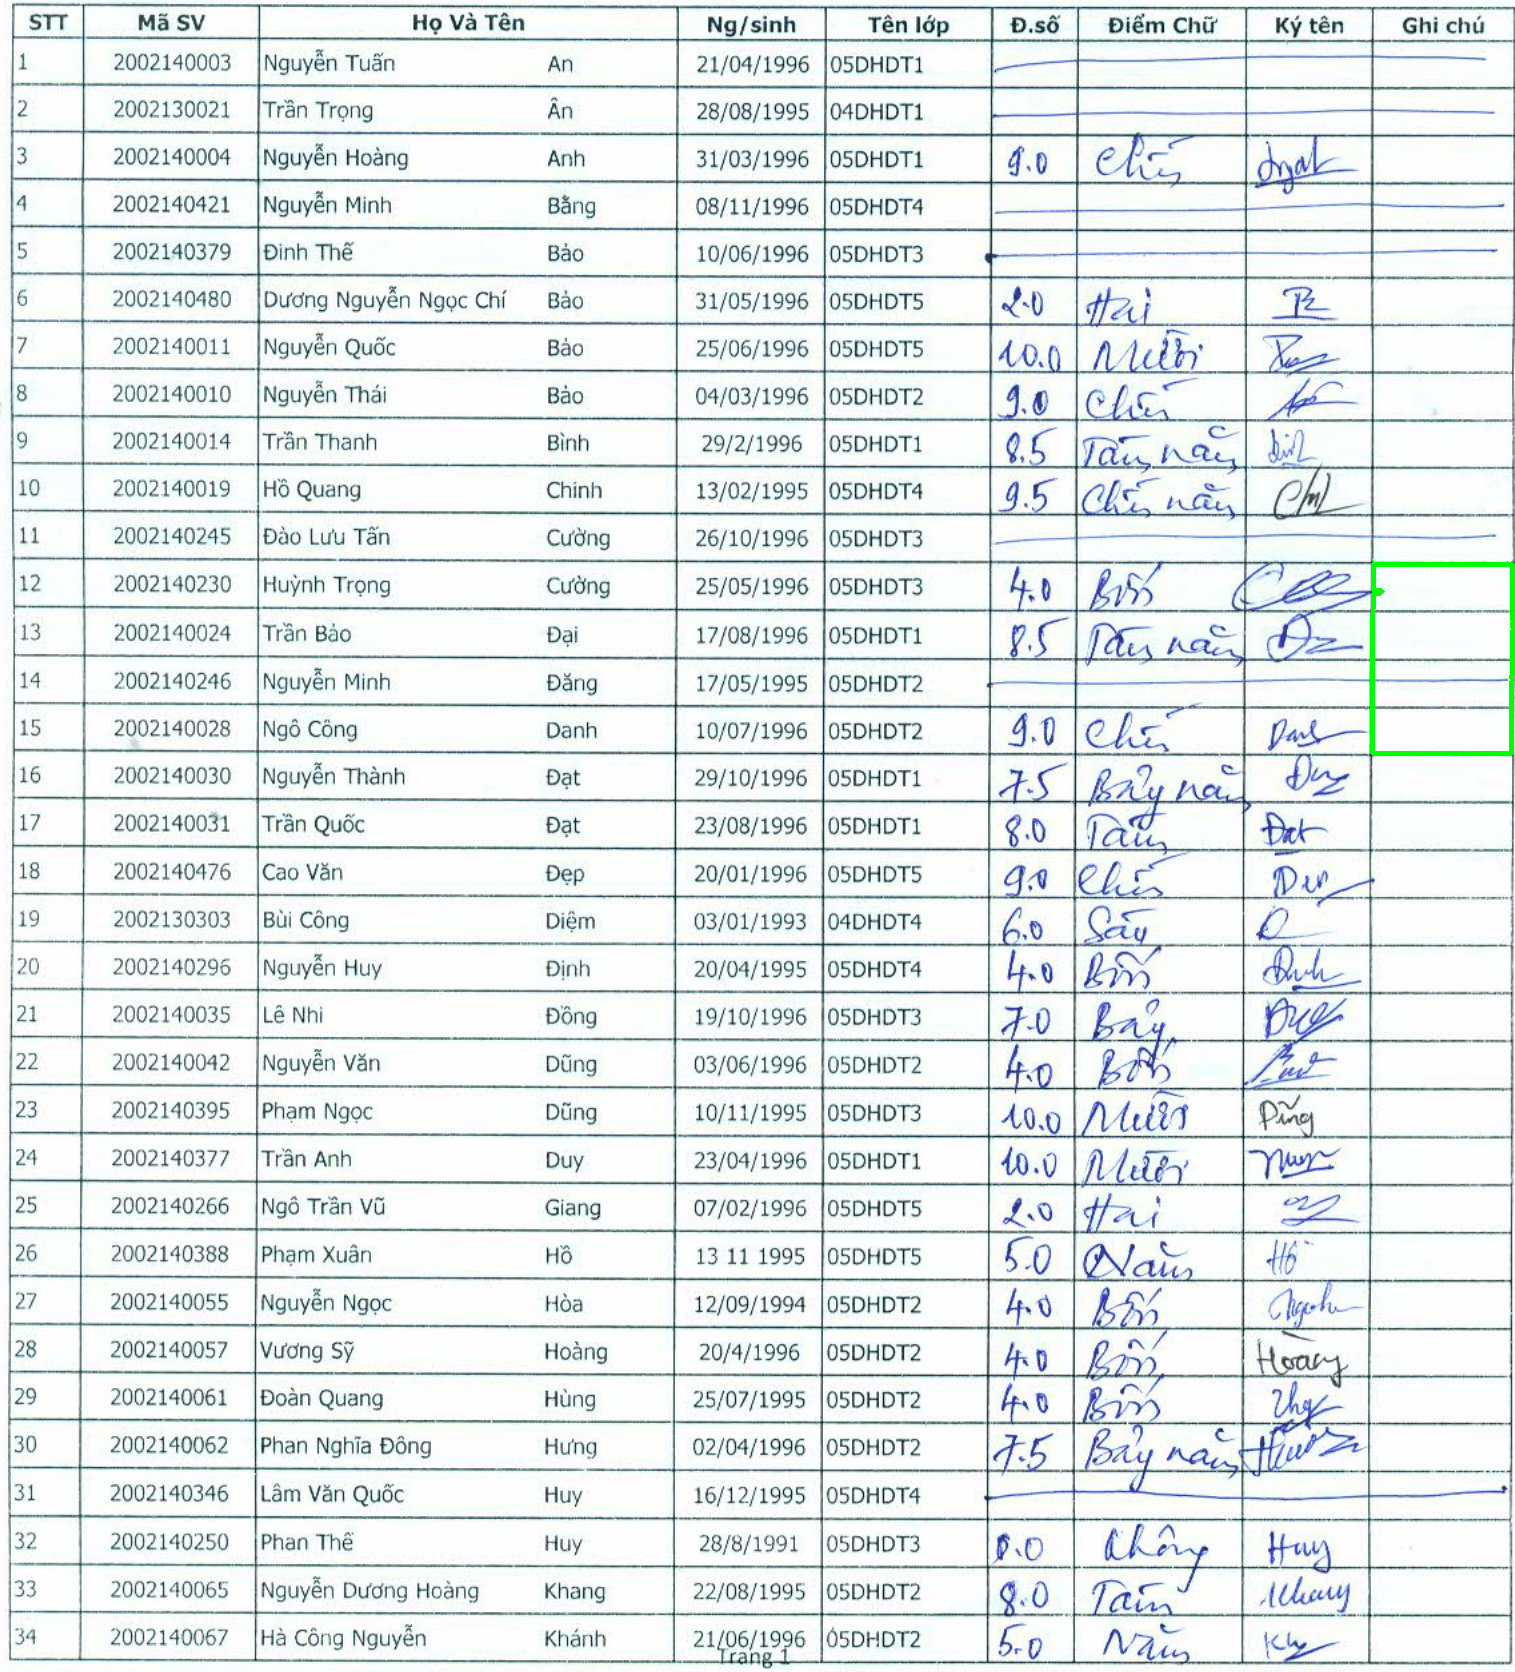 STT Mã SV Họ Và Tên Ng/sinh Tên lớp Đ.số Điểm Chữ Ký tên Ghi chú
1 2002140003 Nguyễn Tuấn An 21/04/1996 05DHDT1
2 2002130021 Trần Trọng Ân 28/08/1995 04DHDT1
3 2002140004 Nguyễn Hoàng Anh 31/03/1996 05DHDT1 9.0 Chín
4 2002140421 Nguyễn Minh Bằng 08/11/1996 05DHDT4
5 2002140379 Đinh Thế Bảo 10/06/1996 05DHDT3
6 2002140480 Dương Nguyễn Ngọc Chí Bảo 31/05/1996 05DHDT5 2.0 Hai
7 2002140011 Nguyễn Quốc Bảo 25/06/1996 05DHDT5 10.0 Mười
8 2002140010 Nguyễn Thái Bảo 04/03/1996 05DHDT2 9.0 Chín
9 2002140014 Trần Thanh Bình 29/2/1996 05DHDT1 8.5 Tám năm
10 2002140019 Hồ Quang Chinh 13/02/1995 05DHDT4 9.5 Chín năm
11 2002140245 Đào Lưu Tấn Cường 26/10/1996 05DHDT3
12 2002140230 Huỳnh Trọng Cường 25/05/1996 05DHDT3 4.0 Bốn
13 2002140024 Trần Bảo Đại 17/08/1996 05DHDT1 8.5 Tám năm
14 2002140246 Nguyễn Minh Đăng 17/05/1995 05DHDT2
15 2002140028 Ngô Công Danh 10/07/1996 05DHDT2 9.0 Chín Danh
16 2002140030 Nguyễn Thành Đạt 29/10/1996 05DHDT1 7.5 Bảy năm
17 2002140031 Trần Quốc Đạt 23/08/1996 05DHDT1 8.0 Tám Đạt
18 2002140476 Cao Văn Đẹp 20/01/1996 05DHDT5 9.0 Chín
19 2002130303 Bùi Công Diệm 03/01/1993 04DHDT4 6.0 Sáu
20 2002140296 Nguyễn Huy Định 20/04/1995 05DHDT4 4.0 Bốn
21 2002140035 Lê Nhi Đồng 19/10/1996 05DHDT3 7.0 Bảy
22 2002140042 Nguyễn Văn Dũng 03/06/1996 05DHDT2 4.0 Bốn
23 2002140395 Phạm Ngọc Dũng 10/11/1995 05DHDT3 10.0 Mười Dũng
24 2002140377 Trần Anh Duy 23/04/1996 05DHDT1 10.0 Mười
25 2002140266 Ngô Trần Vũ Giang 07/02/1996 05DHDT5 2.0 Hai
26 2002140388 Phạm Xuân Hồ 13 11 1995 05DHDT5 5.0 Năm Hồ
27 2002140055 Nguyễn Ngọc Hòa 12/09/1994 05DHDT2 4.0 Bốn
28 2002140057 Vương Sỹ Hoàng 20/4/1996 05DHDT2 4.0 Bốn Hoàng
29 2002140061 Đoàn Quang Hùng 25/07/1995 05DHDT2 4.0 Bốn
30 2002140062 Phan Nghĩa Đông Hưng 02/04/1996 05DHDT2 7.5 Bảy năm
31 2002140346 Lâm Văn Quốc Huy 16/12/1995 05DHDT4
32 2002140250 Phan Thế Huy 28/8/1991 05DHDT3 0.0 Không Huy
33 2002140065 Nguyễn Dương Hoàng Khang 22/08/1995 05DHDT2 8.0 Tám Khang
34 2002140067 Hà Công Nguyễn Khánh 21/06/1996 05DHDT2 5.0 Năm
Trang 1